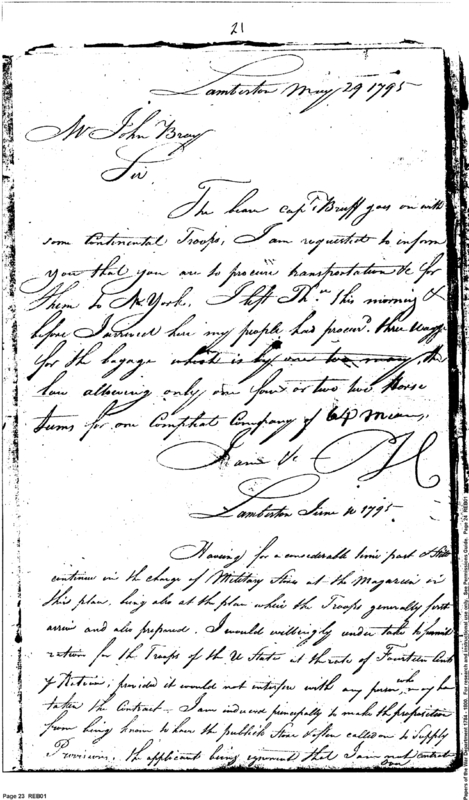 21
Lamberton May 29 1795
Mr John Bray
Sir
The bearer capt. Bruff goes on with
some Continental Troops, I am requested to inform
you that you are to procure transportation &c for
them to N York. I left Pha. this morning &
before I arrived here my people had procurd. three wagg
for the bagage which is by one two many, the
law allowing only one four or two two Horse
teams for one Compleat Company of 64 mean,
I am &c
Lamberton June 10 1795
Having for a considerable time past & still
continue in the charge of Military Stores at the Magazien in
this place being also at the place where the Troops generally first
arrive and also prepared. I would willingly under take to furnish
rations for the Troops of the U States at the rate of Fourteen Cents
⅌ Ration; provided it would not interfere with any person who may have
taken the Contract - I am induced principally to make the proposition
from being known to have the publick Store & often called on to supply
Provisions. the applicant being ignorant that I am not contract
Page 23 REB01
Papers of the War Department 1784 - 1800. For research and instructional use only. See Permissions Guide. Page 24 REB01